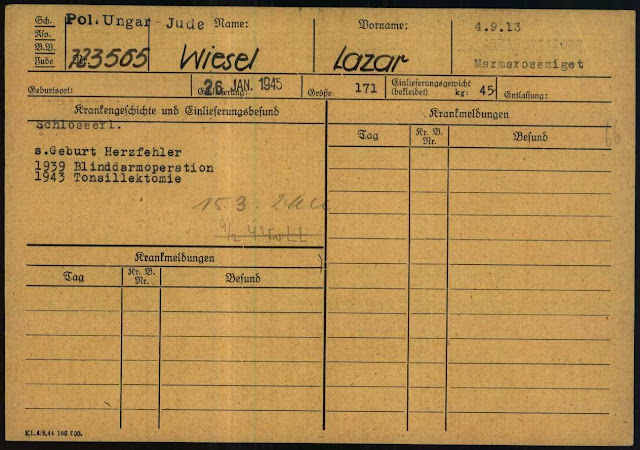 Sch.
Aso.
B.V.
Jude
Pol. Ungar - Jude Name: Vorname: 4.9.13
Nr. 123565 Wiesel Lazar Marmarossziget
Geburtsort: 26. JAN. 1945 Größe: 171 Einlieferungsgewicht (bekleidet) kg: 45 Entlassung:
Krankengeschichte und Einlieferungsbefund
Schlosserl.
s.Geburt Herzfehler
1939 Blinddarmoperation
1943 Tonsillektomie
15.3.
Krankmeldungen
Tag Kr. B. Nr. Befund
Krankmeldungen
Tag Kr. B. Nr. Befund
KL.4/8.44 100 000.